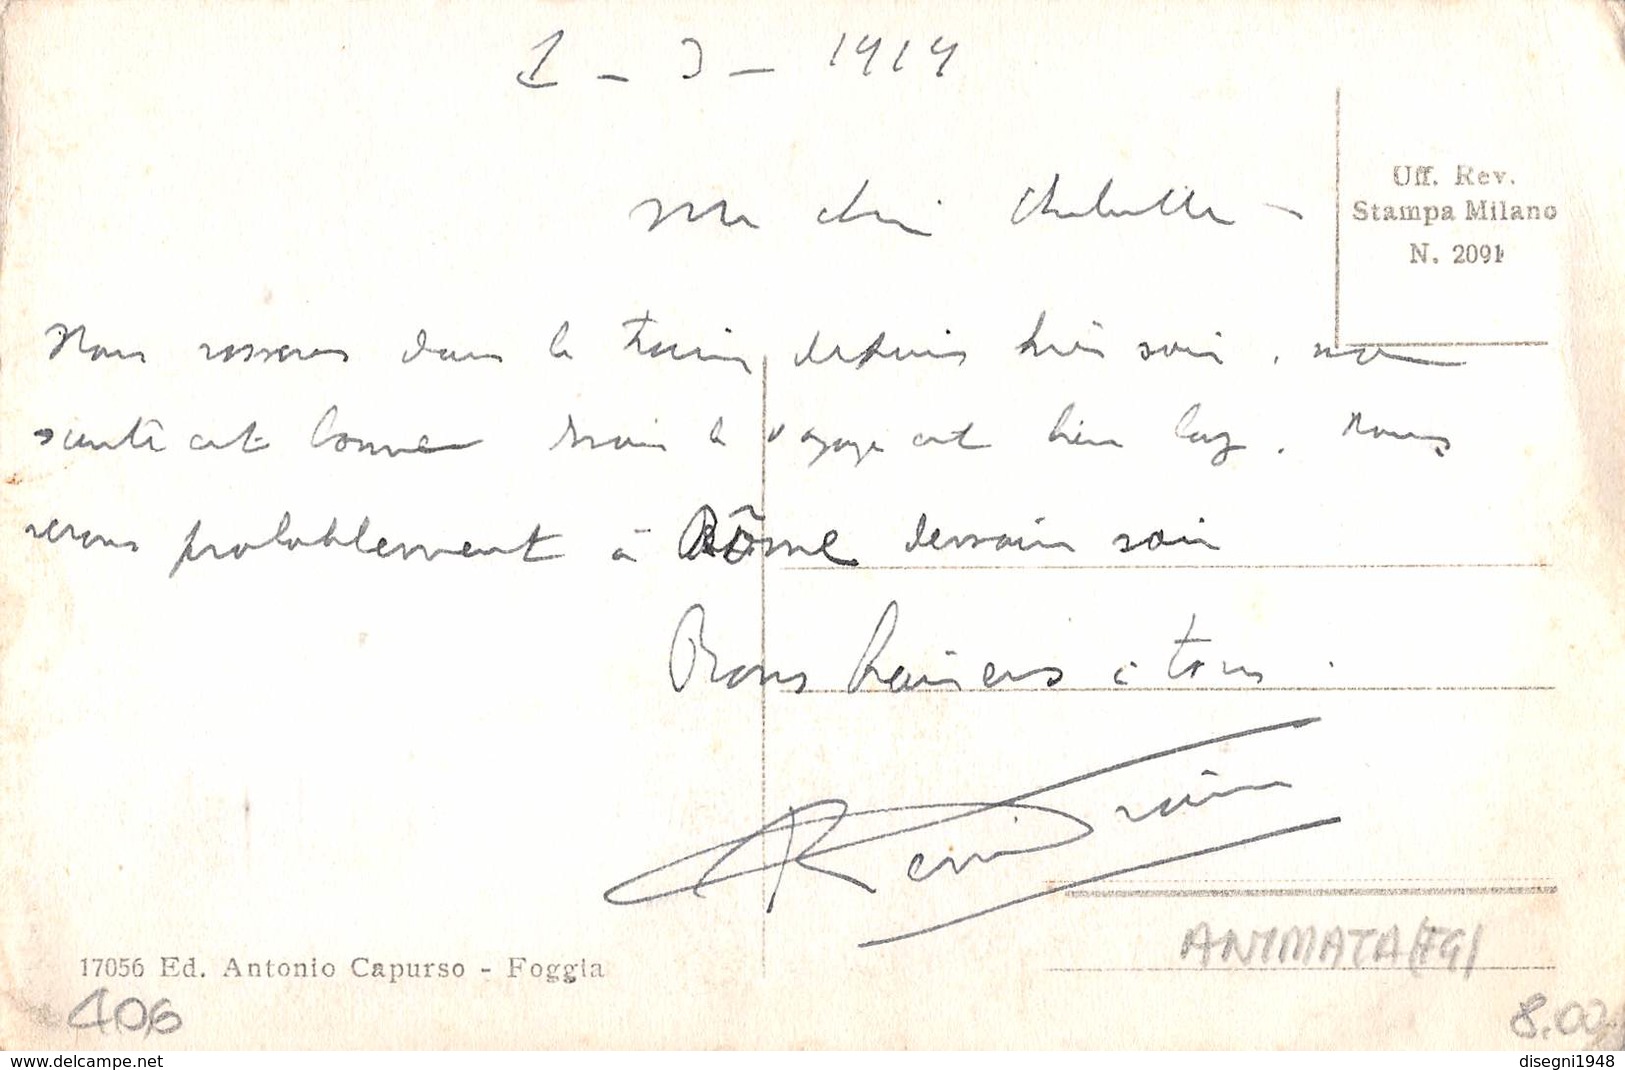 1 - 3 - 1919
Ma chère
Uff. Rev.
Stampa Milano
N. 2091
Nous sommes dans le train depuis hier soir. ma
santé est bonne mais le voyage est bien long. Nous
serons probablement à Rôme demain soir
Bons baisers à tous.
17056 Ed. Antonio Capurso - Foggia
ANIMATA (FG)
406
8.00
disegni1948